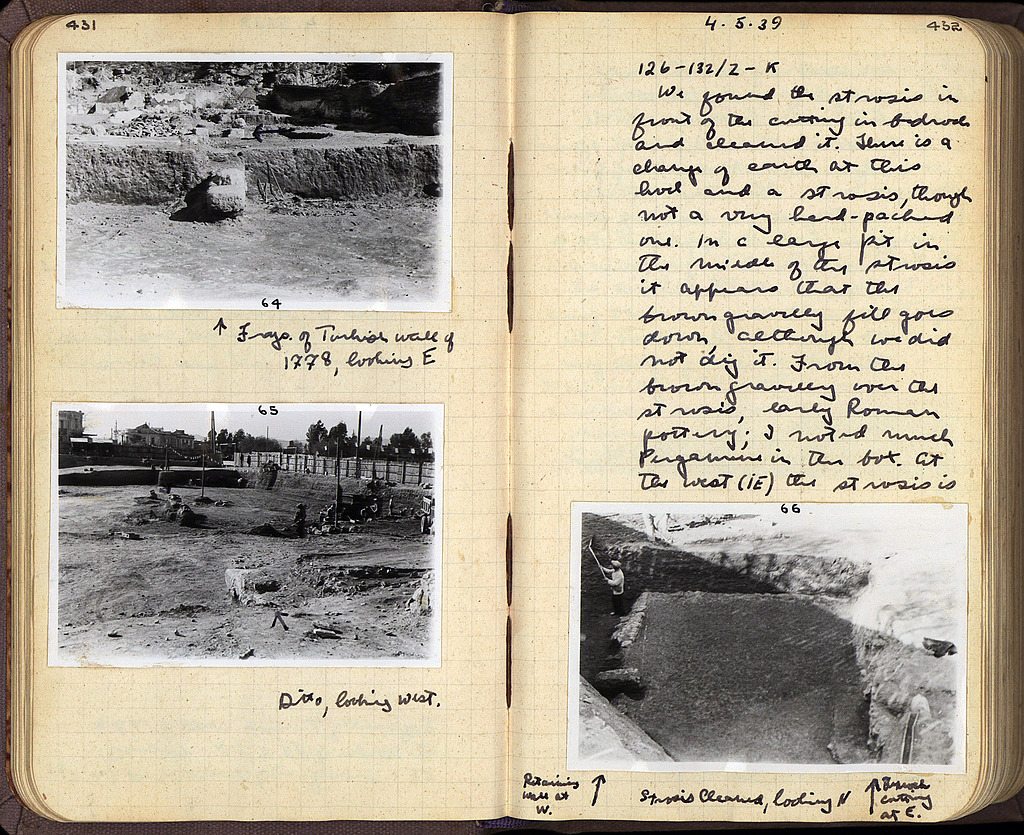 431
64
↑ Frags. of Turkish wall of
1778, looking E
65
Ditto, looking west.
4.5.39
432
126-132/Z-K
We found the strosis in
front of the cutting in bedrock
and cleaned it. There is a
change of earth at this
level and a strosis, though
not a very hard-packed
one. In a large pit in
the middle of the strosis
it appears that the
brown gravelly fill goes
down, although we did
not dig it. From the
brown gravelly over the
strosis, early Roman
pottery; I noted much
Pergamene in the bot. At
the west (IE) the strosis is
66
Retaining
wall at
W. ↑
Strosis Cleaned, looking N
↑ Bedrock
cutting
at E.